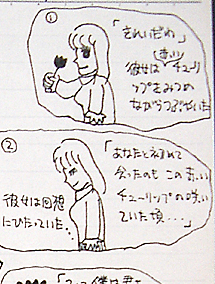 ①
「きれいだわ」
彼女は(赤い)チューリ
ップをみつめ
ながらつぶやいた
②
「あなたとはじめて
会ったのも この赤い
チューリップの咲い
ていた頃・・・」
彼女は回想
にひたっていた。